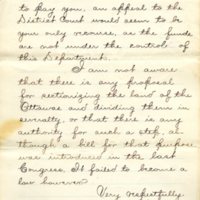 to pay you, an appeal to the
District Court would seem to be
your only recourse, as the funds
are not under the control of
this Department.
I am not aware
that there is any proposal
for sectionizing the land of the
Ottawas and dividing them in
severalty, or that there is any
authority for such a step, al-
though a bill for that purpose
was introduced in the last
Congress. It failed to become a
law however.
Very respectfully